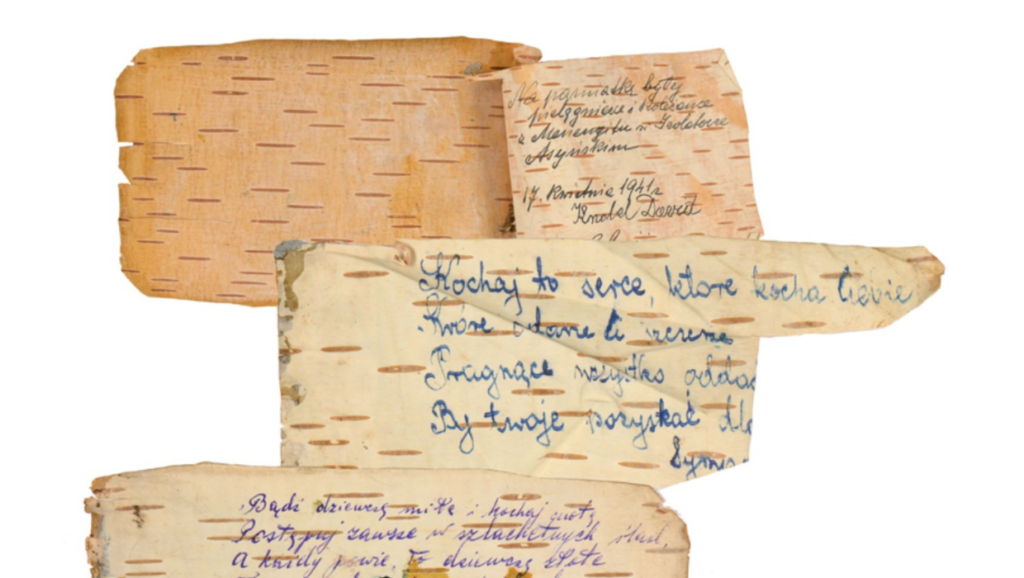 Na pamiątkę byłej
pielęgniarce i koleżance
z Merengitu w Izolatorce
Asyńskim
17. Kwietnia 1941 r
Knobel Dawid
Kochaj to serce, ktore kocha Ciebie
Które odane Ci
Pragnące wszystko oddać
By twoje pozyskać dla
Bądź dziewczę miłe i kochaj cnotę
Postępuj zawsze w szlachetnych
A każdy powie, To dziewczę złote